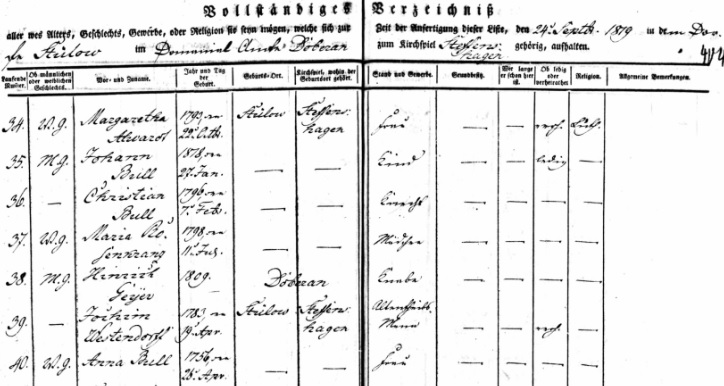 Vollständiges Verzeichniß
aller wes Alters, Geschlechts, Gewerbe, oder Religion sie seyn mögen, welche sich zur Zeit der Anfertigung dieser Liste, den 24. Septb. 1819 in dem
Stülow im Dominial Amts Doberan zum Kirchspiel Steffenshagen gehörig, aufhalten.
Laufende Numer. Ob männlichen oder weiblichen Geschlechts. Vor- und Zuname. Jahr und Tag der Geburt. Geburts-Ort. Kirchspiel, wohin der Geburtsort gehört. Stand und Gewerbe. Grundbesitz. Wie lange er schon hier ist. Ob ledig oder verheirathet Religion. Allgemeine Bemerkungen.
34. W.g. Margaretha 1793, Stülow Steffens-
22. hagen Frau — — verh. Luth.
35. M.g. Johann 1818,
Bull 27. Jan. — — Kind — — ledig —
36. — Christian 1796,
Bull 7. Feb. — — Knecht — — — —
37. W.g. Maria 1798,
11. — — Mädchen — — — —
38. M.g. Hinrich 1809. Doberan Knabe — — — —
Geyer
39. — Jochim 1783, Stülow Steffens- Altentheils-
Westendorff 19. Apr. hagen Mann — — verh. —
40. W.g. Anna Bull 1756,
28. Apr. — — Frau — — — —